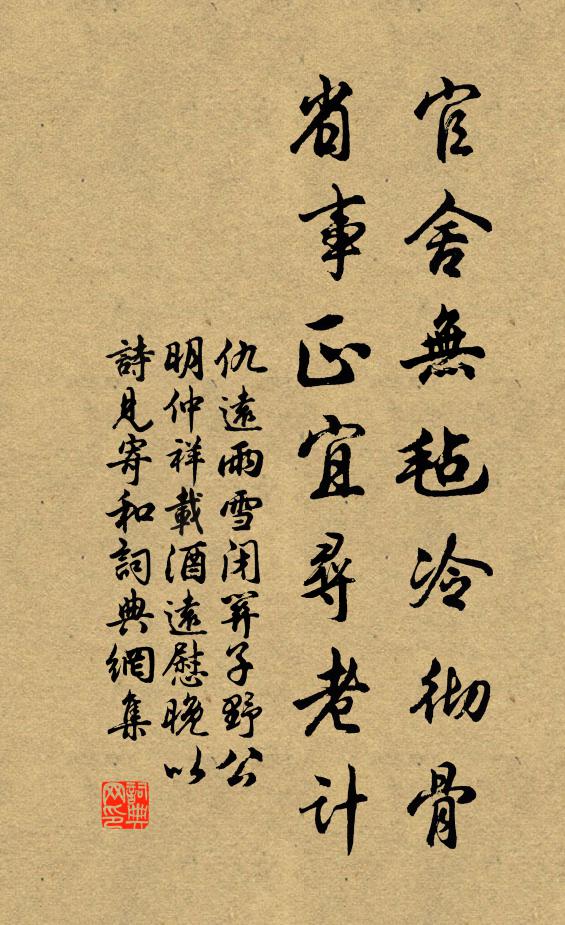 官舍無毡冷彻骨
省事正宜尋老計
仇遠雨雪闭箅子野公
明仲祥載酒遠慰晚以
詩見寄和詞典網集
詞典網印